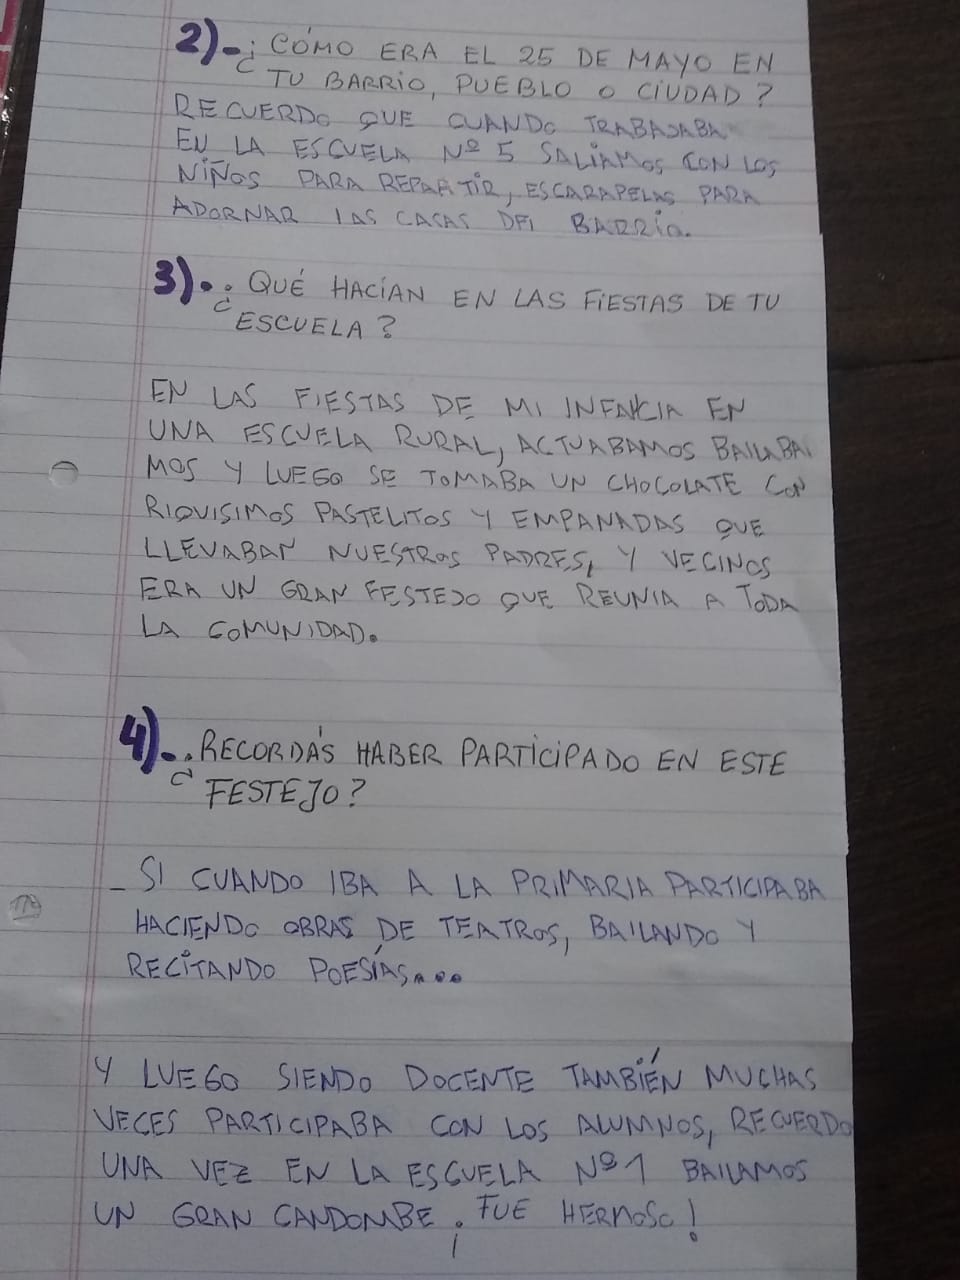 2)- ¿CÓMO ERA EL 25 DE MAYO EN
TU BARRIO, PUEBLO O CIUDAD?
RECUERDO QUE CUANDO TRABAJABA
EN LA ESCUELA Nº 5 SALÍAMOS CON LOS
NIÑOS PARA REPARTIR, ESCARAPELAS PARA
ADORNAR LAS CASAS DEL BARRIO.
3). ¿QUÉ HACÍAN EN LAS FIESTAS DE TU
ESCUELA?
EN LAS FIESTAS DE MI INFANCIA EN
UNA ESCUELA RURAL, ACTUABAMOS BAILABA
MOS Y LUEGO SE TOMABA UN CHOCOLATE CON
RIQUISIMOS PASTELITOS Y EMPANADAS QUE
LLEVABAN NUESTROS PADRES, Y VECINOS
ERA UN GRAN FESTEJO QUE REUNIA A TODA
LA COMUNIDAD.
4)- ¿RECORDÁS HABER PARTICIPADO EN ESTE
FESTEJO?
- SI CUANDO IBA A LA PRIMARIA PARTICIPABA
HACIENDO OBRAS DE TEATROS, BAILANDO Y
RECITANDO POESÍAS....
Y LUEGO SIENDO DOCENTE TAMBIÉN MUCHAS
VECES PARTICIPABA CON LOS ALUMNOS, RECUERDO
UNA VEZ EN LA ESCUELA Nº 1 BAILAMOS
UN GRAN CANDOMBE ¡FUE HERMOSO!